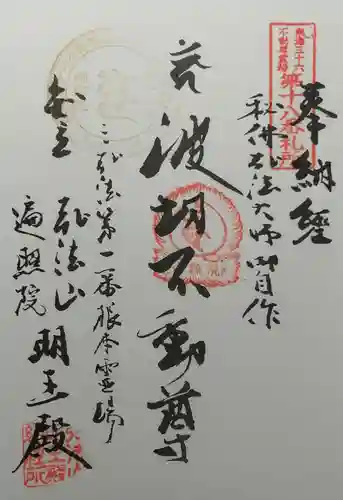 奉納經
東海三十六
不動尊霊場
第十八番札所
秘佛弘法大師御自作
波切不動尊
三弘法第一番根本霊場
弘法山
遍照院
明王殿